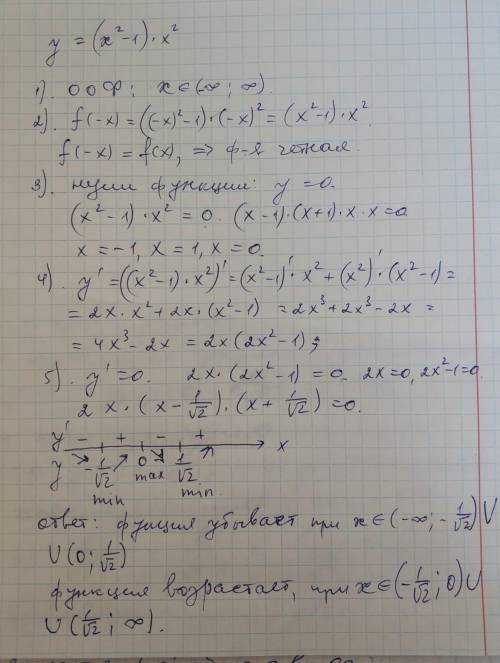 y = (x² - 1) · x²
1). ООФ: x ∈ (-∞; ∞).
2). f(-x) = ((-x)² - 1) · (-x)² = (x² - 1) · x².
f(-x) = f(x), => ф-я четная.
3). нули функции: y = 0.
(x² - 1) · x² = 0. (x - 1) · (x + 1) · x · x = 0
x = -1, x = 1, x = 0.
4). y' = ((x² - 1) · x²)' = (x² - 1)' · x² + (x²)' · (x² - 1) =
= 2x · x² + 2x · (x² - 1) = 2x³ + 2x³ - 2x =
= 4x³ - 2x = 2x (2x² - 1);
5). y' = 0. 2x · (2x² - 1) = 0. 2x = 0, 2x² - 1 = 0.
2x · (x - 1/√2) · (x + 1/√2) = 0.
y' - + - + x
y ↘ -1/√2 ↗ 0 ↘ 1/√2 ↗
min max min
ответ: функция убывает при x ∈ (-∞; -1/√2) U
U (0; 1/√2)
функция возрастает, при x ∈ (-1/√2; 0) U
U (1/√2; ∞).